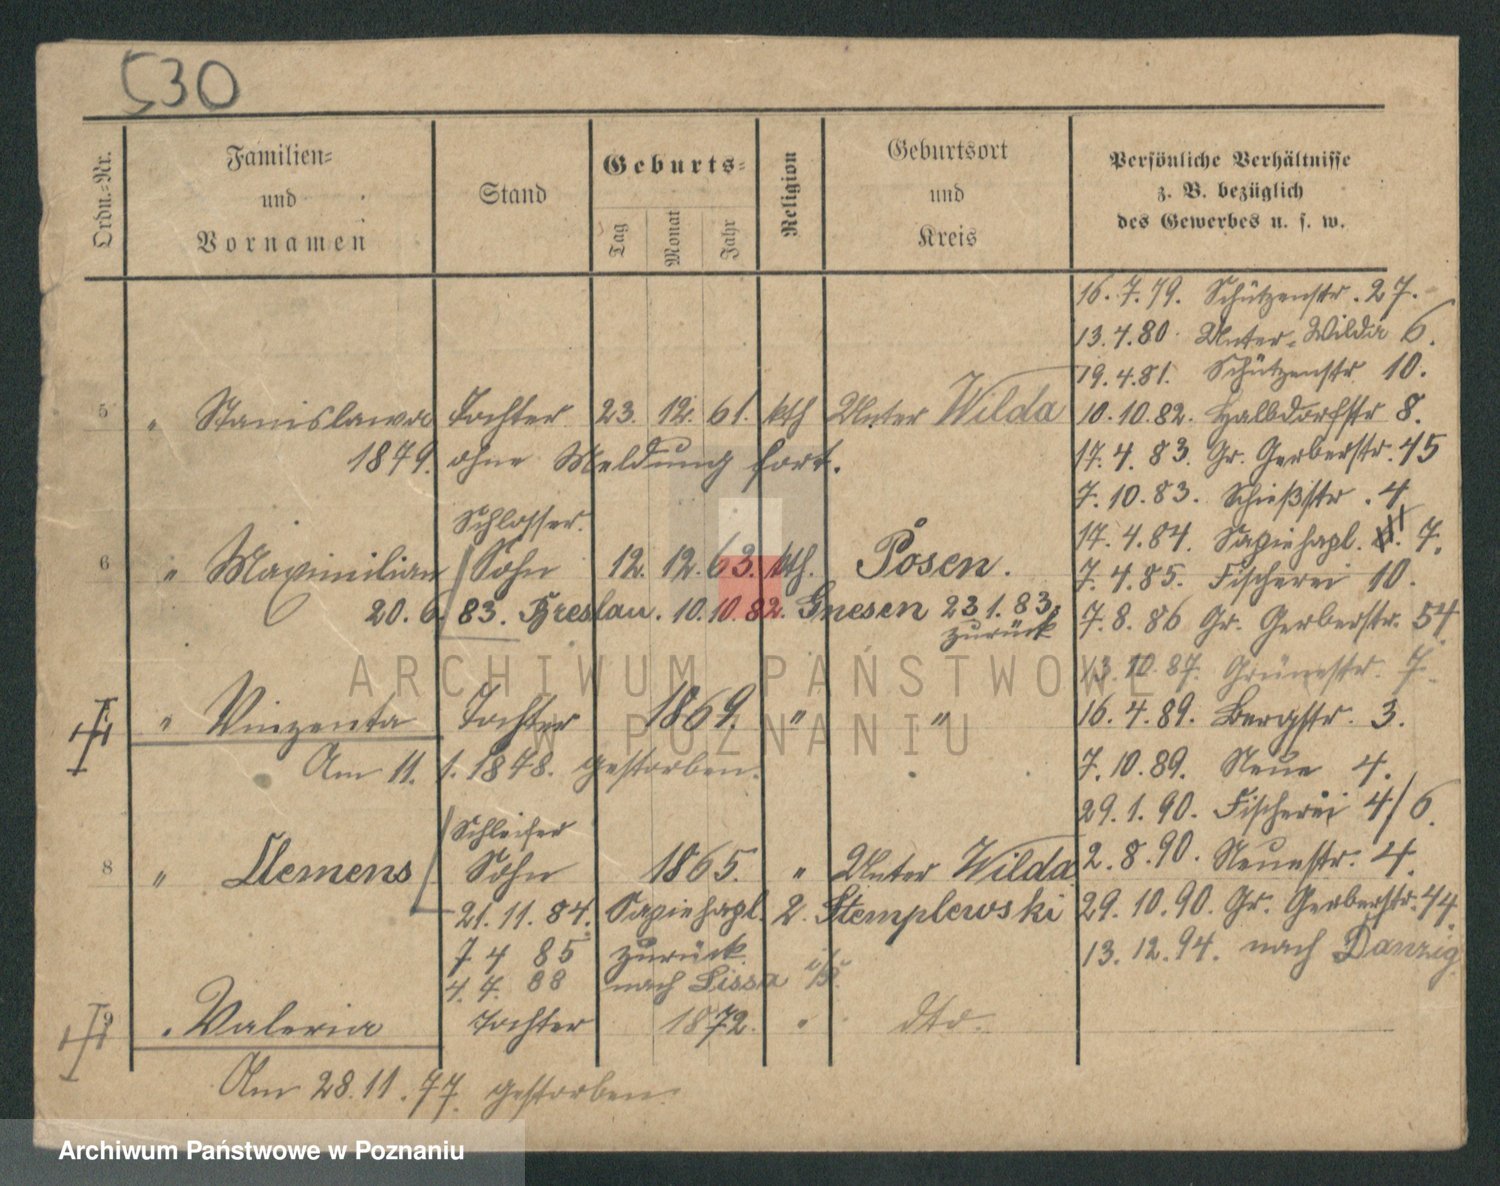 530
Ordn.-Nr.
Familien-
und
Vornamen
Stand
Geburts-
Tag
Monat
Jahr
Religion
Geburtsort
und
Kreis
Persönliche Verhältnisse
z. B. bezüglich
des Gewerbes u. s. w.
5 " Stanislawa Tochter 23. 12. 61. kth Unter Wilda
1879. ohne Meldung fort.
Schlosser.
6 " Maximilian Sohn 12. 12. 63. kth. Posen.
20. 6. 83. Breslau. 10. 10. 82. Gnesen 23 1. 83.
zurück
" Vinzenta Tochter 1869. " "
Am 11. 1. 1878. gestorben.
Schleifer
8 " Clemens Sohn 1865. " Unter Wilda
21. 11. 84. Sapiehapl. 2. Stemplewski
7 4 85 zurück
4. 7. 88 nach Lissa i/P.
9 " Valeria Tochter 1872. " dto.
Am 28. 11. 77. gestorben.
16. 7. 79. Schützenstr. 27.
13. 4. 80. Unter-Wilda 6.
19. 4. 81. Schützenstr 10.
10. 10. 82. Halbdorfstr 8.
17. 4. 83. Gr. Gerberstr. 45
7. 10. 83. Schießstr. 4
17. 4. 84. Sapiehapl. 7.
7. 4. 85. Fischerei 10.
7. 8. 86 Gr. Gerberstr. 54
13. 10. 87. Grünestr. 7.
16. 4. 89. Bergstr. 3.
7. 10. 89. Neue 4.
29. 1. 90. Fischerei 4/6.
2. 8. 90. Neuestr. 4.
29. 10. 90. Gr. Gerberstr. 44.
13. 12. 94. nach Danzig
ARCHIWUM PAŃSTWOWE
W POZNANIU
Archiwum Państwowe w Poznaniu